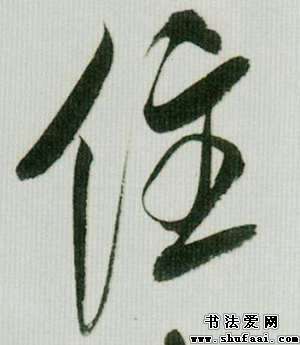 住
书法爱网
www.shufaai.com